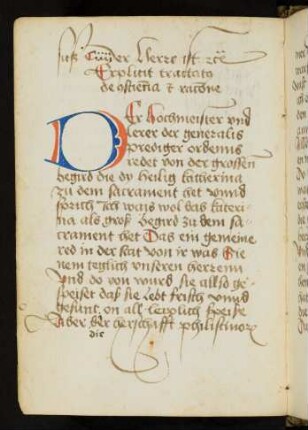 der Herre ist
Explicit tractatus
de
Er hochmeister vnd
lerer der generalis
prediger ordennis
redet von der grossen
begird die dy heilig katherina
zu dem sacrament het vnnd
spricht Ich wais wol das kateri-
na als groß begird zu dem sa-
crament het Das ein gemeine
red in der stat von ir was Die
nem teglich vnseren herrenn
Vnd do von wurd sie also ge-
speiset daß sie lebt frisch vnnd
gesunt on all leiplich speise
Aber der philistinorum
die